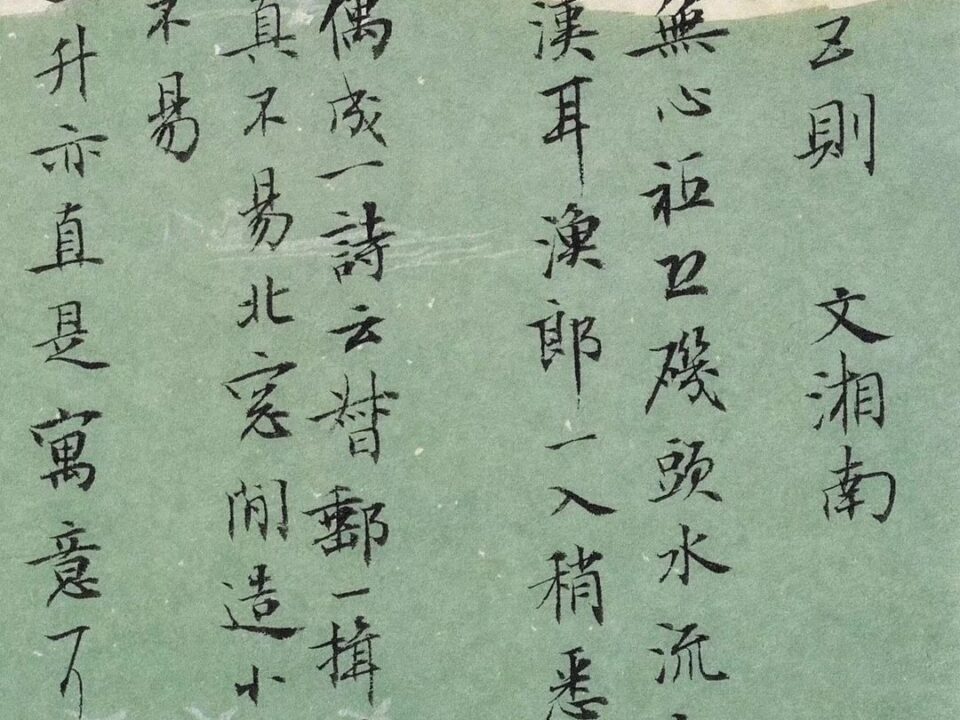 五則 文湘南
無心祗磯頭水流
漢耳漁郎一入稍悉
偶成一詩云督郵一揖
真不易北窓閒造小
不易
升亦直是寓意